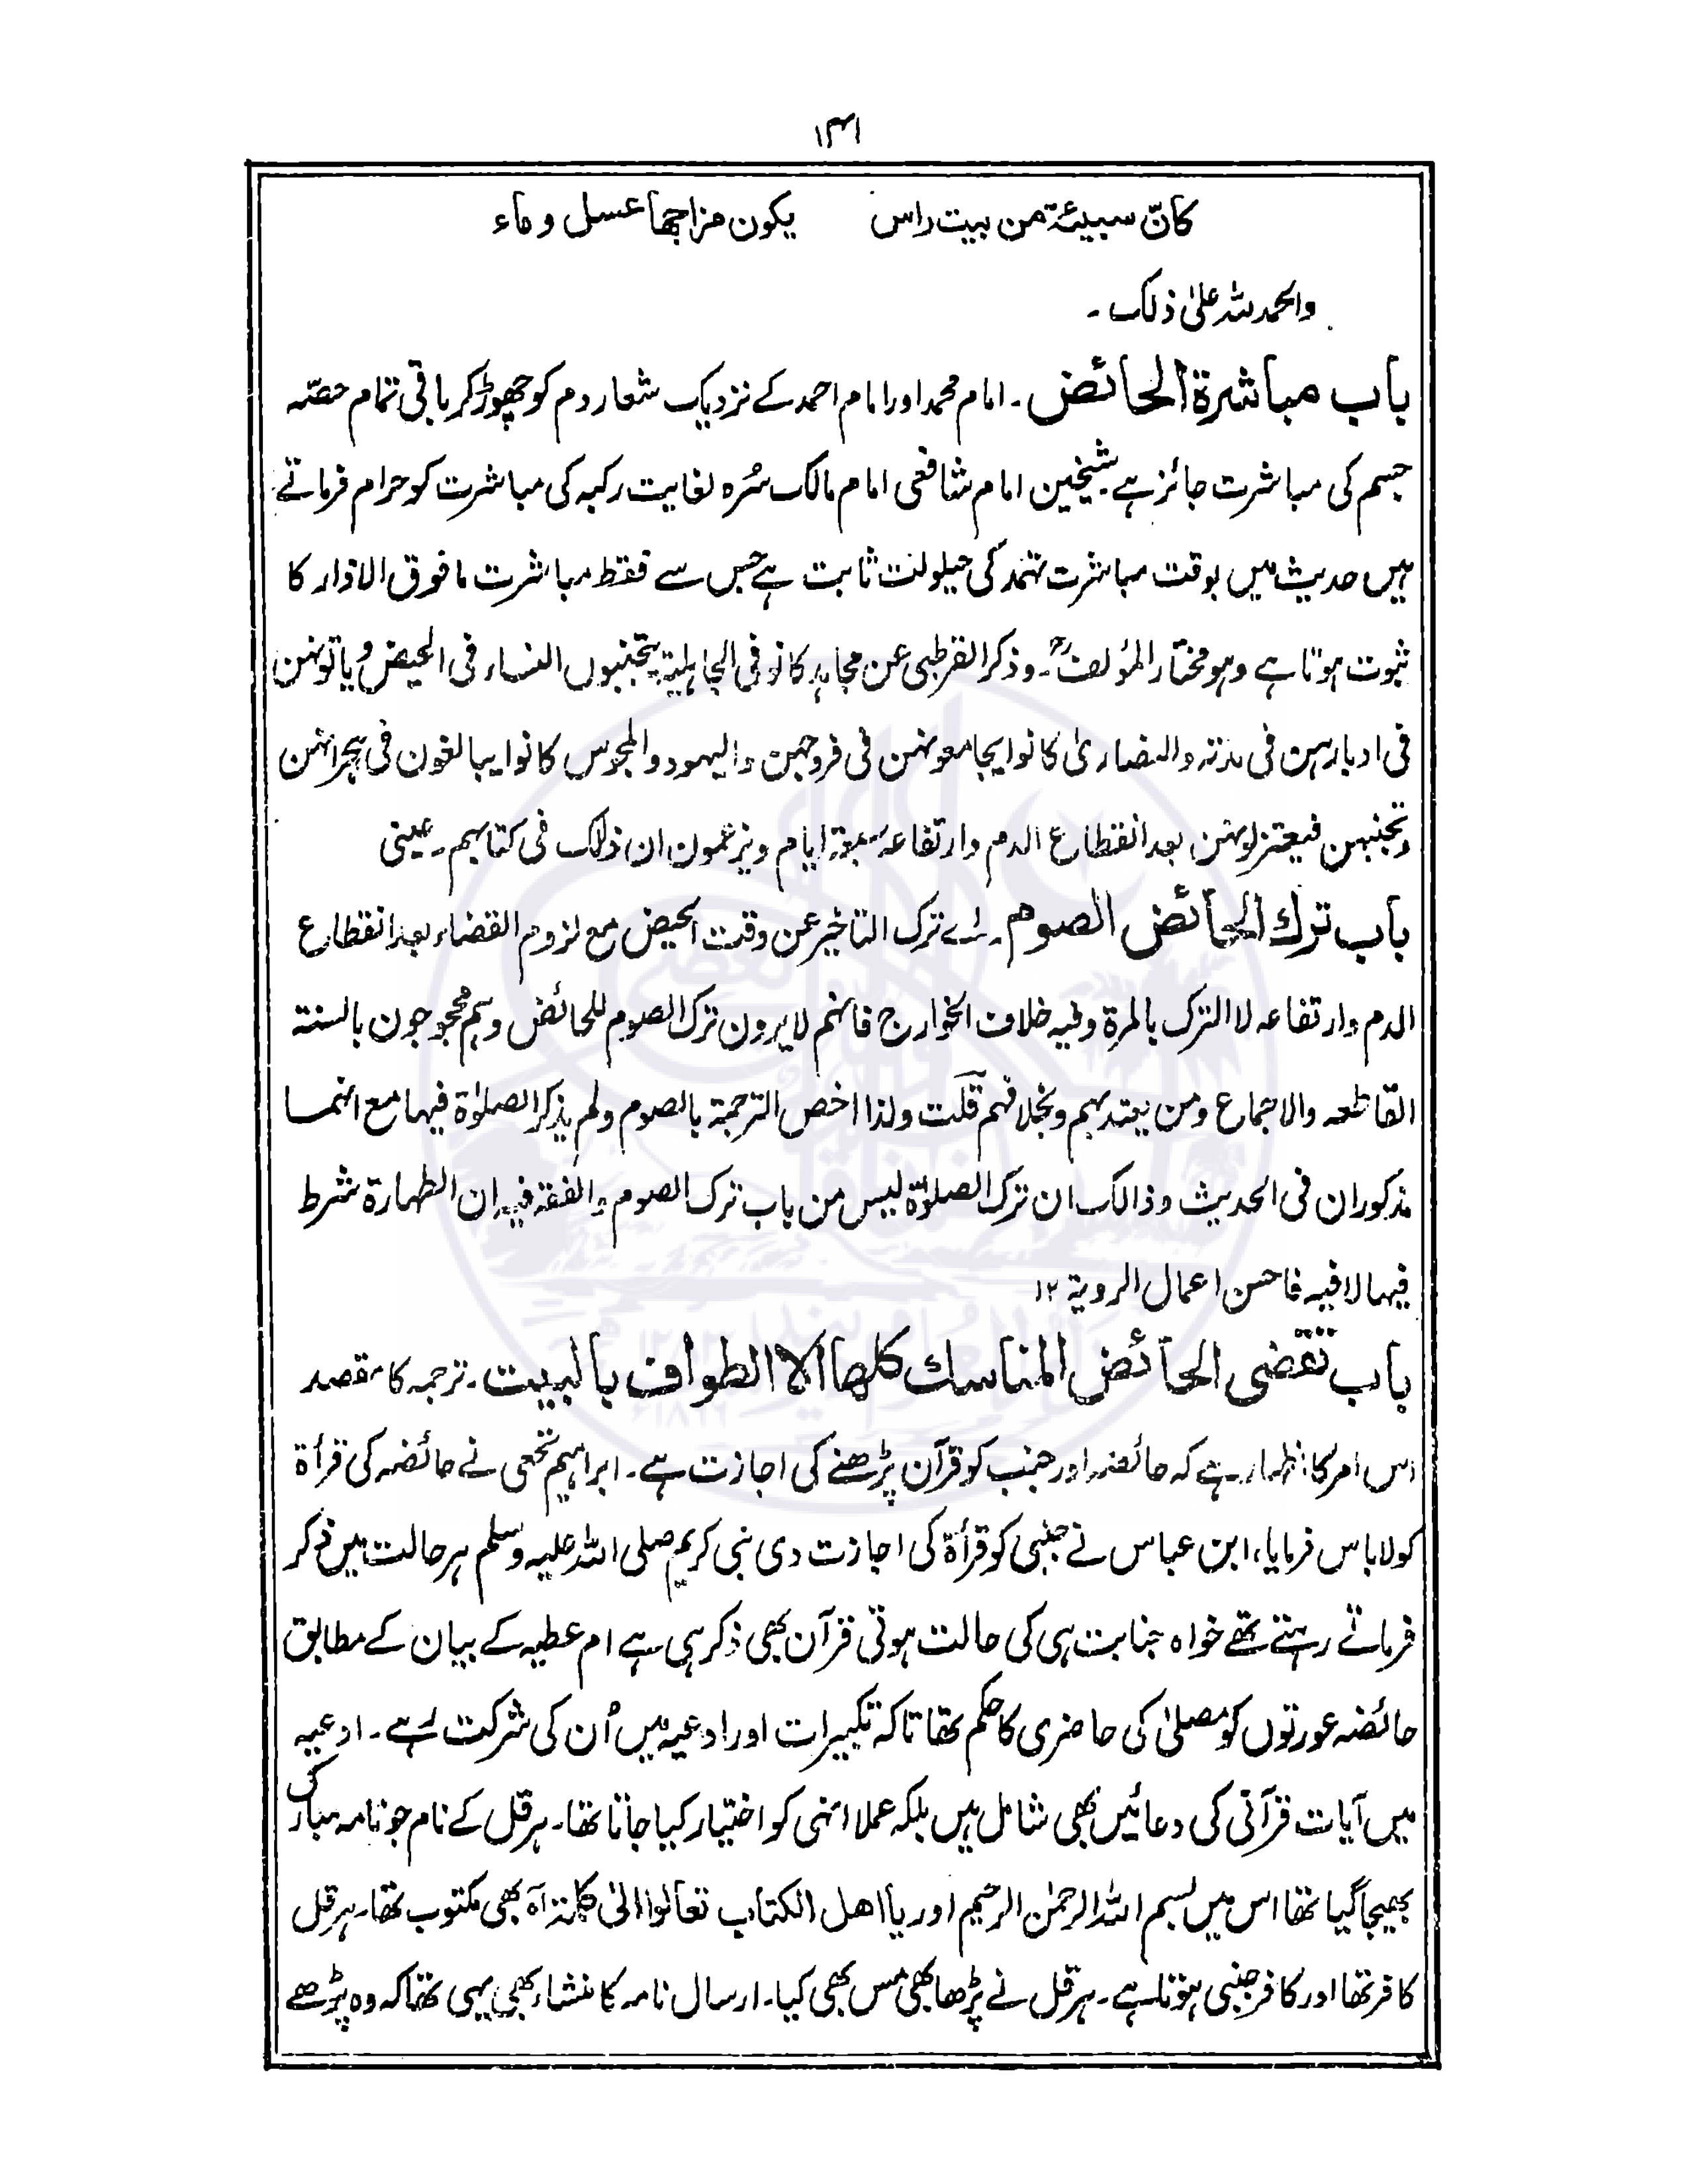 ۱۳۱
كانّ سبيئة من بيت راس    يكون مزاجها عسل و ماء
والحمد للہ علیٰ ذلک ۔
باب مباشرة الحائض ۔ امام محمد اور امام احمد کے نزدیک شعار دم کو چھوڑ کر باقی تمام حصّہ
جسم کی مباشرت جائز ہے ۔ شیخین امام شافعی امام مالک سُرہ لغایت رکبہ کی مباشرت کو حرام فرماتے
ہیں حدیث میں بوقت مباشرت تہمد کی حیلولت ثابت ہے جس سے فقط مباشرت مافوق الازار کا
ثبوت ہوتا ہے وہو مختار المؤلف ۔ وذکر القرطبی عن مجاہد کانوا فی الجاہلیۃ یتجنبون النساء فی الحیض ویاتونہن
فی ادبارہن فی مدتہ والنصاریٰ کانوا یجامعونہن فی فروجہن والیہود والمجوس کانوا یبالغون فی ہجرانہن
وتجنبہن فیعتزلونہن بعد انقطاع الدم وارتفاعہ سبعۃ ایام ویزعمون ان ذلک فی کتابہم ۔ عینی
باب ترك الحائض الصوم ۔ اے ترک التاخیر عن وقت الحیض مع لزوم القضاء بعد انقطاع
الدم وارتفاعہ لا الترک بالمرۃ وفیہ خلاف الخوارج فانہم لا یرون ترک الصوم للحائض وہم محجوجون بالسنتہ
القاطعہ والاجماع ومن یعتد بہم وبخلافہم قلت ولذا اخص الترجمۃ بالصوم ولم یذکر الصلوٰۃ فیہا مع انہما
مذکوران فی الحدیث وذالک ان ترک الصلوٰۃ لیس من باب ترک الصوم والفقہ فیہ ان الطہارۃ شرط
فیہا لا فیہ فاحسن اعمال الرویۃ ۱۲
باب تقضی الحائض المناسك كلها الا الطواف بالبيت ۔ ترجمہ کا مقصد
اس امر کا اظہار ہے کہ حائضہ اور جنب کو قرآن پڑھنے کی اجازت ہے ۔ ابراہیم نخعی نے حائضہ کی قرأۃ
کو لا باس فرمایا ، ابن عباس نے جنبی کو قرأۃ کی اجازت دی نبی کریم صلی اللہ علیہ وسلم ہر حالت میں ذکر
فرماتے رہتے تھے خواہ جنابت ہی کی حالت ہوتی قرآن بھی ذکر ہی ہے ام عطیہ کے بیان کے مطابق
حائضہ عورتوں کو مصلیٰ کی حاضری کا حکم تھا تاکہ تکبیرات اور ادعیہ میں اُن کی شرکت رہے ۔ ادعیہ
میں آیات قرآنی کی دعائیں بھی شامل ہیں بلکہ عملا انہی کو اختیار کیا جاتا تھا ۔ ہرقل کے نام جو نامہ مبارک
بھیجا گیا تھا اس میں بسم اللہ الرحمٰن الرحیم اور یا اھل الکتاب تعالوا الیٰ کلمۃ آہ بھی مکتوب تھا ۔ ہرقل
کافر تھا اور کافر جنبی ہوتا ہے ۔ ہرقل نے پڑھا بھی مس بھی کیا ۔ ارسال نامہ کا منشاء بھی یہی تھا کہ وہ پڑھے